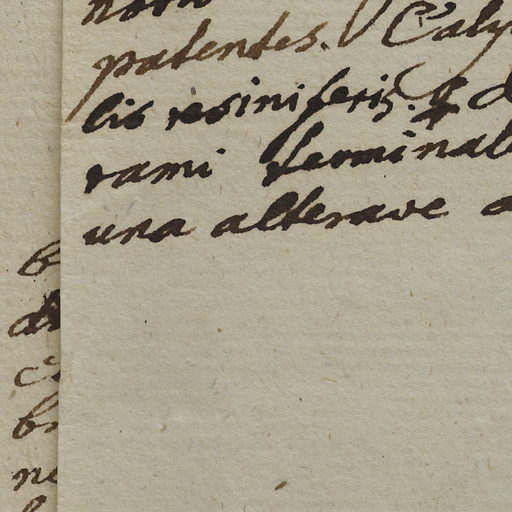 patentes. Caly
lis resiniferis. &
rami terminal
una alterave a
b
d
b
ne